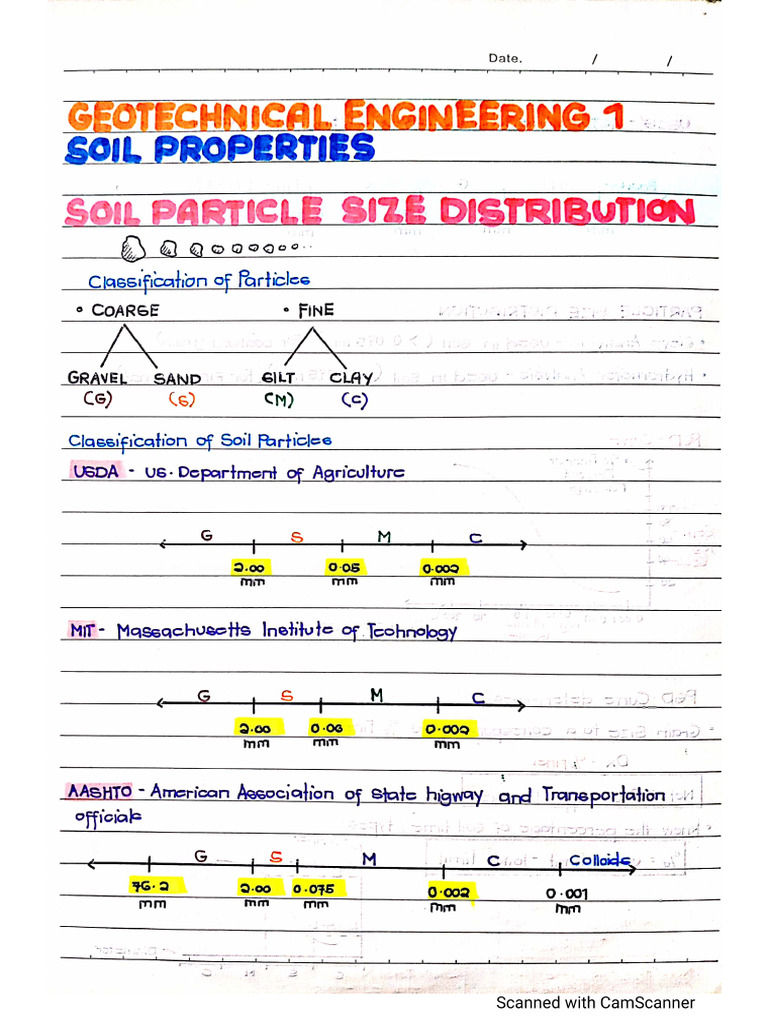 Date. / /
GEOTECHNICAL ENGINEERING 1
SOIL PROPERTIES
SOIL PARTICLE SIZE DISTRIBUTION
Classification of Particles
• COARSE • FINE
GRAVEL SAND SILT CLAY
(G) (S) (M) (C)
Classification of Soil Particles
USDA - US. Department of Agriculture
G S M C
2.00 0.05 0.002
mm mm mm
MIT - Massachusetts Institute of Technology
G S M C
2.00 0.06 0.002
mm mm mm
AASHTO - American Association of state higway and Transportation
officials
G S M C Colloids
76.2 2.00 0.075 0.002 0.001
mm mm mm mm mm
Scanned with CamScanner